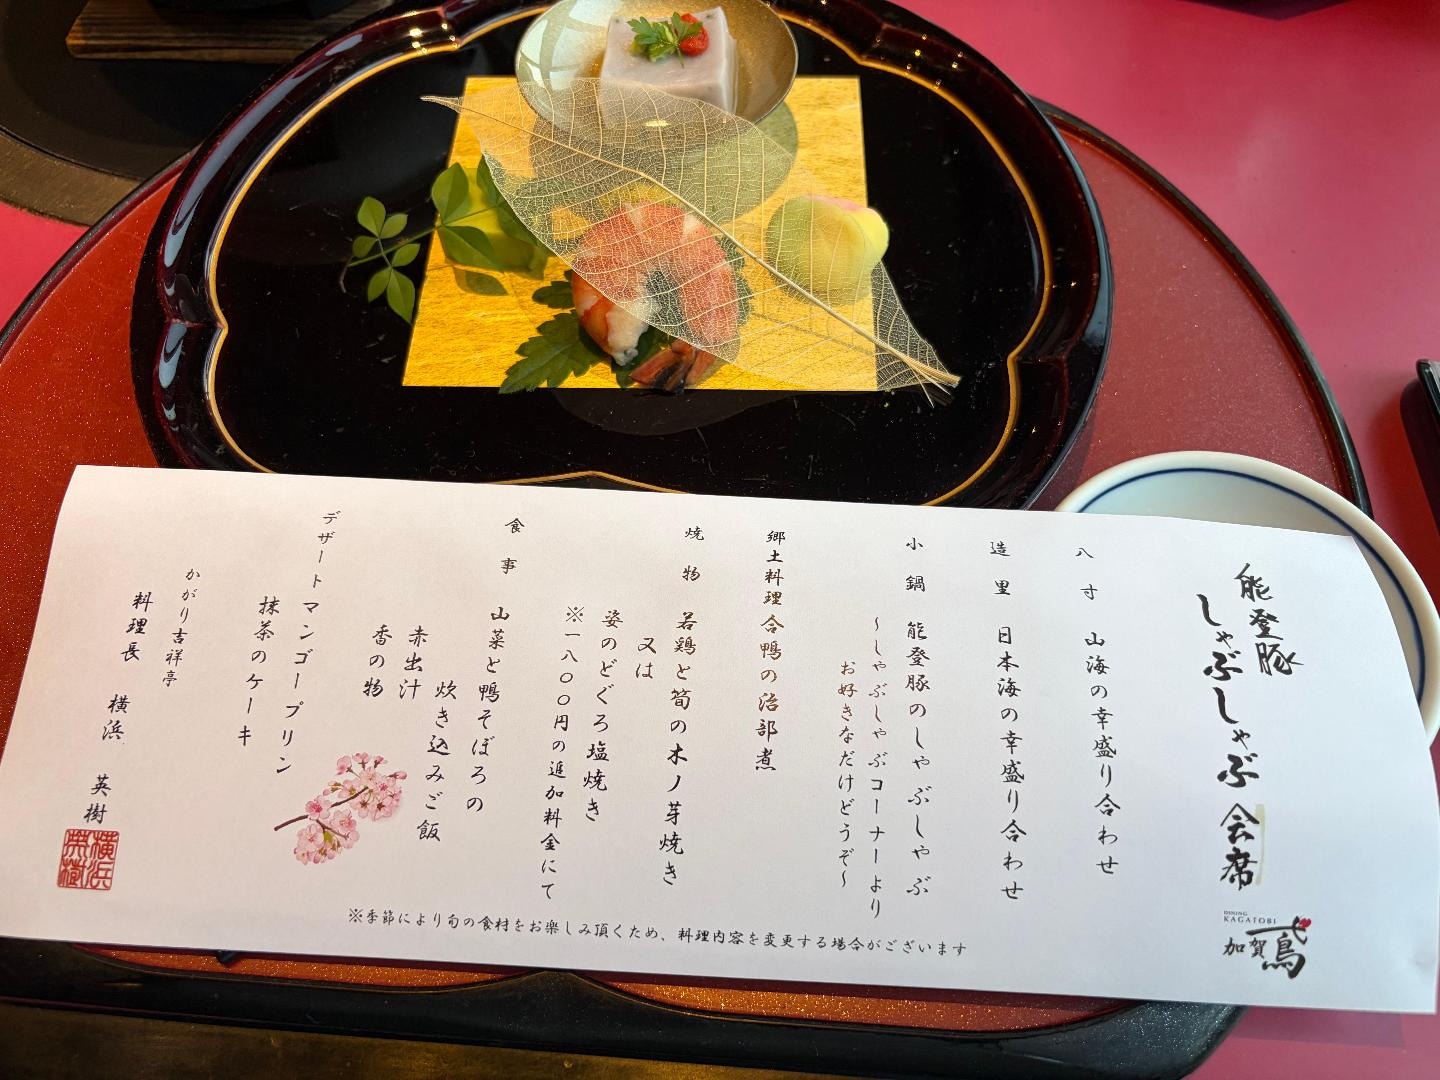 能登豚
しゃぶしゃぶ 会席
DINING
KAGATOBI
加賀鳶
八寸 山海の幸盛り合わせ
造里 日本海の幸盛り合わせ
小鍋 能登豚のしゃぶしゃぶ
～しゃぶしゃぶコーナーより
お好きなだけどうぞ～
郷土料理 合鴨の治部煮
焼物 若鶏と筍の木ノ芽焼き
又は
姿のどぐろ塩焼き
※一八〇〇円の追加料金にて
食事 山菜と鴨そぼろの
炊き込みご飯
赤出汁
香の物
デザート マンゴープリン
抹茶のケーキ
かがり吉祥亭
料理長 横浜 英樹
横浜
英樹
※季節により旬の食材をお楽しみ頂くため、料理内容を変更する場合がございます